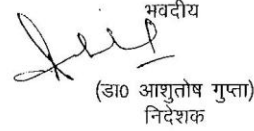 भवदीय
(डा0 आशुतोष गुप्ता)
निदेशक